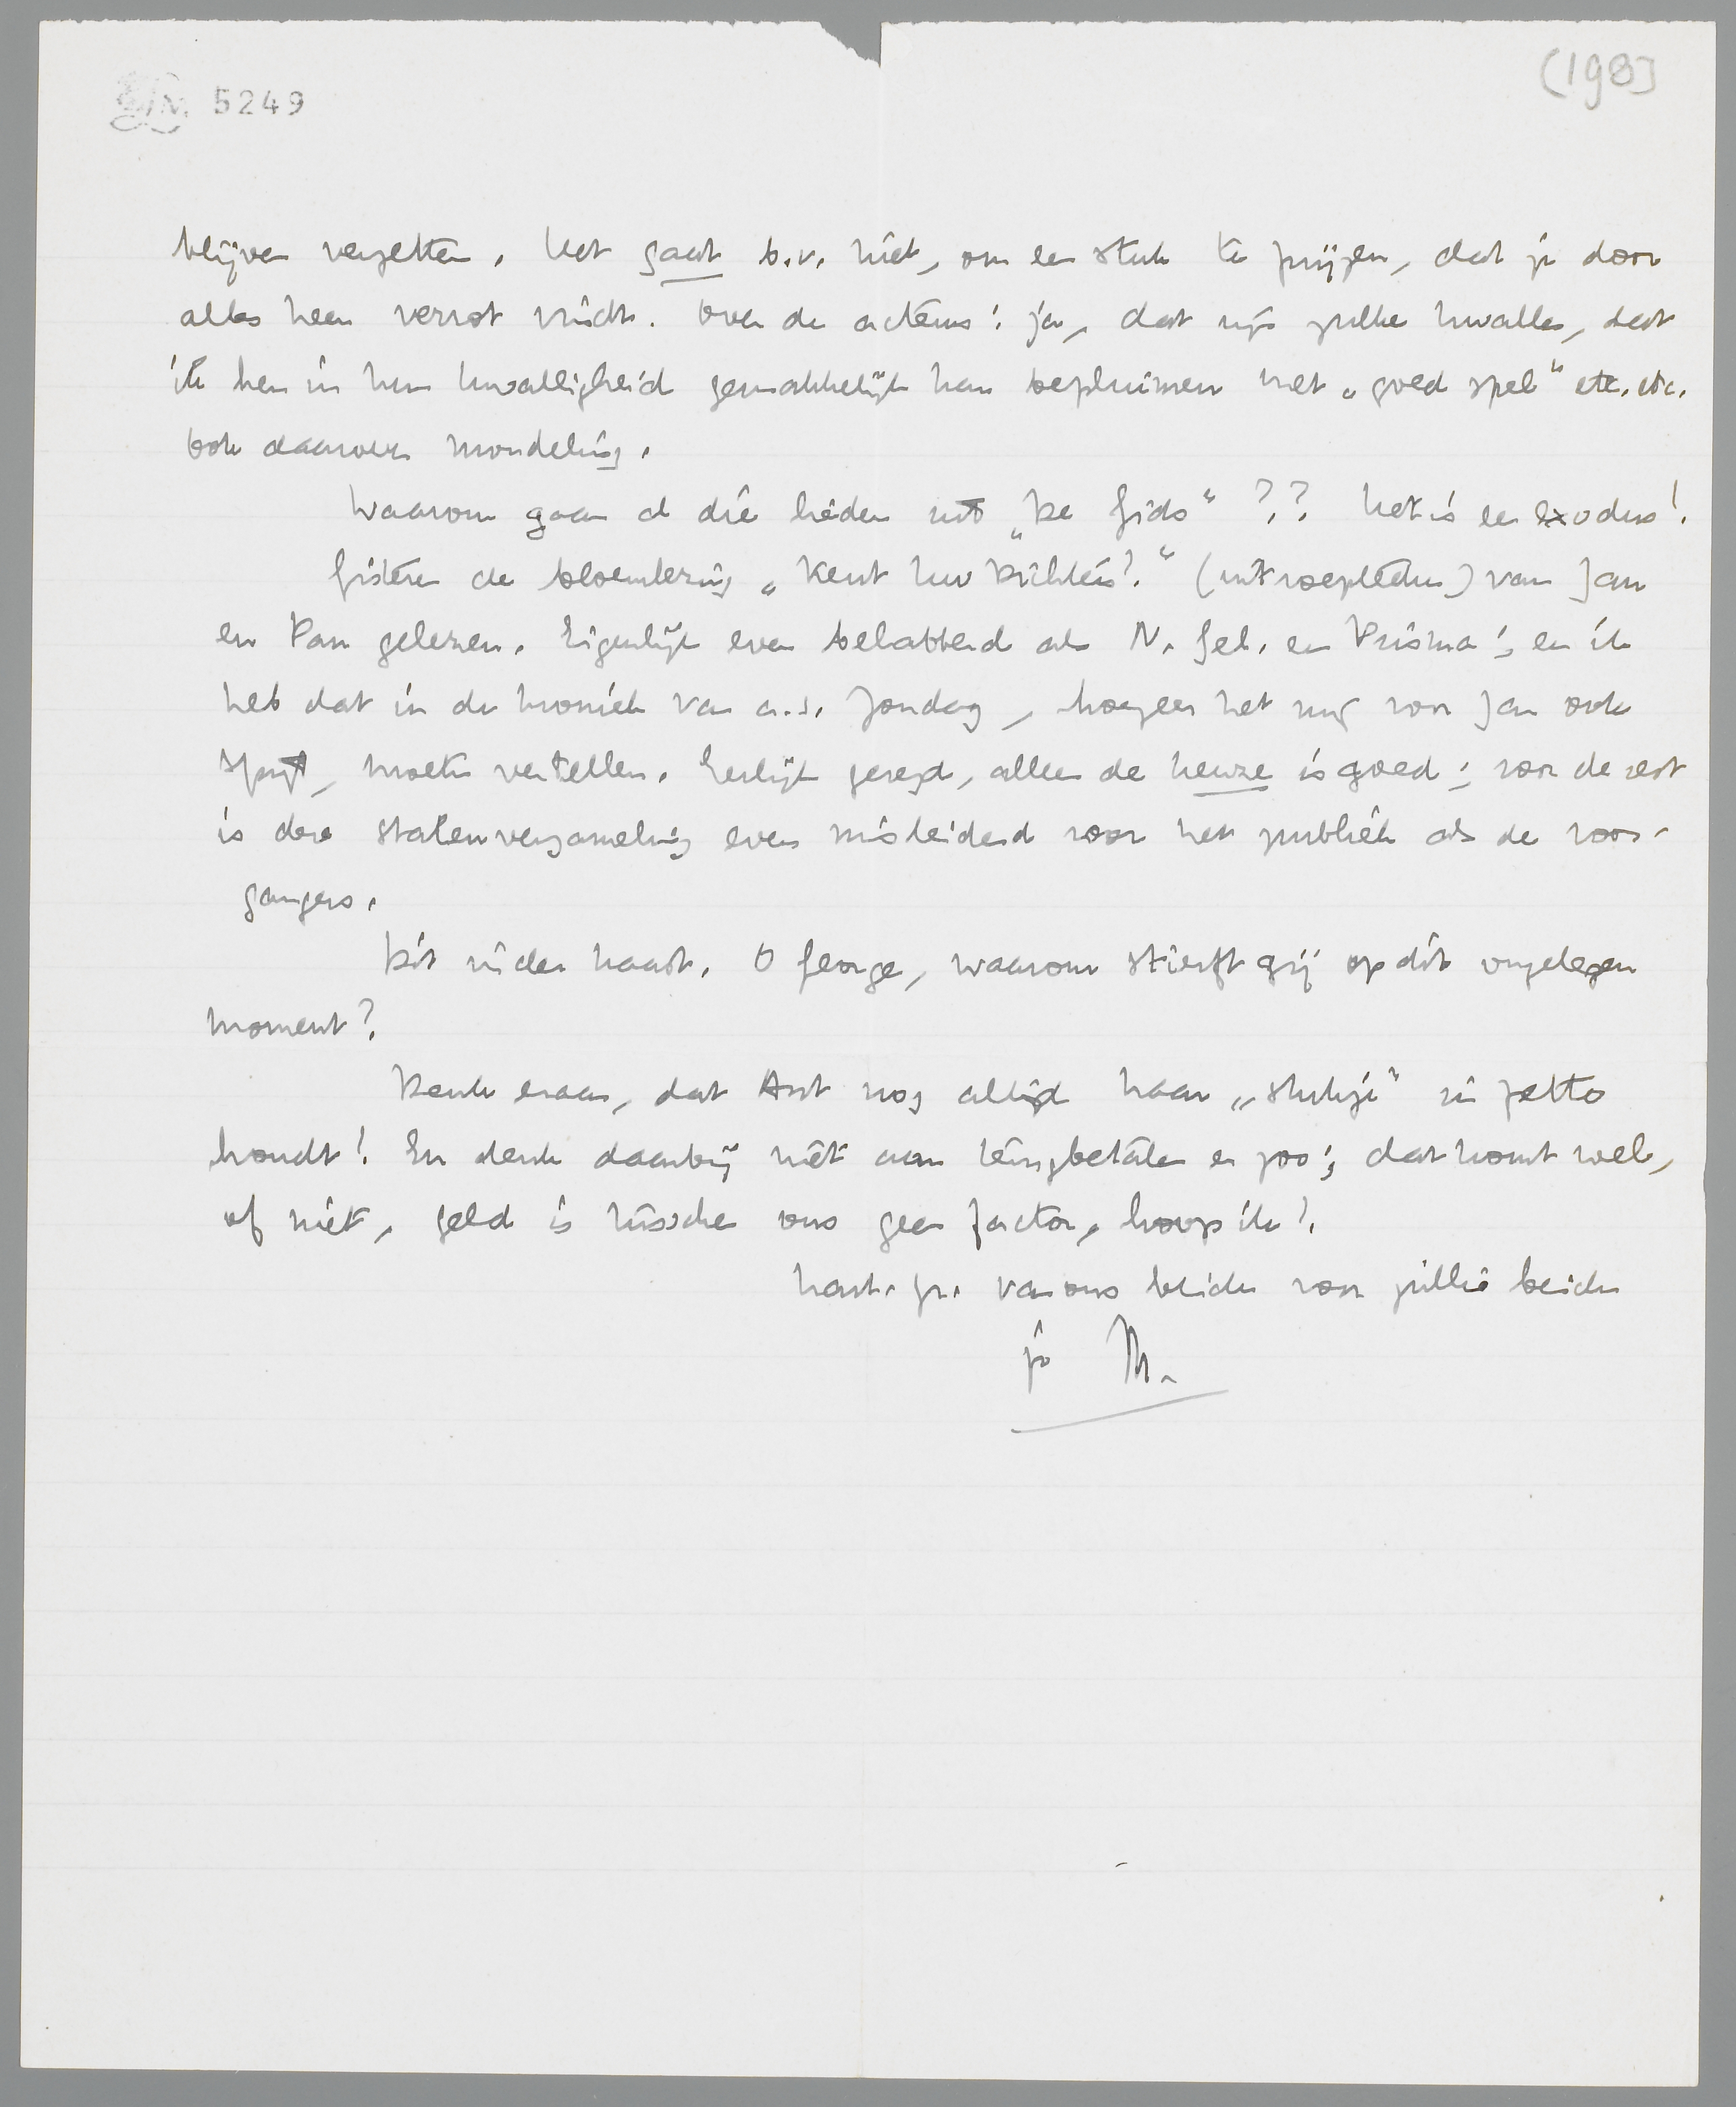 5249
(198]
blijven verzetten. Het gaat b.v. niet, om een stuk te prijzen, dat je door
alles heen verrot vindt. Over de acteurs: ja, dat zijn zulke kwallen, dat
ik hen in hun kwalligheid gemakkelijk kan bepluimen met „goed spel" etc. etc.
Ook daarover mondeling.
Waarom gaan al die lieden uit „De Gids"?? Het is een exodus!
Gisteren de bloemlezing „Kent Uw Dichters!" (uitroepteeken) van Jan
en Pom gelezen. Eigenlijk even belabberd als N. Gel. en Prisma; en ik
heb dat in de kroniek van a.s. Zondag, hoezeer het mij voor Jan ook
spijt, moeten vertellen. Eerlijk gezegd, alleen de keuze is goed; voor de rest
is deze stalenverzameling even misleidend voor het publiek als de voor-
gangers.
Dit in der haast. O George, waarom stierft gij op dit ongelegen
moment?
Denk eraan, dat Ant nog altijd haar „stukje" in petto
houdt! En denk daarbij niet aan terugbetalen en zoo; dat komt wel,
of niet, geld is tusschen ons geen factor, hoop ik!
hart. gr. van ons beiden voor jullie beiden
je M.